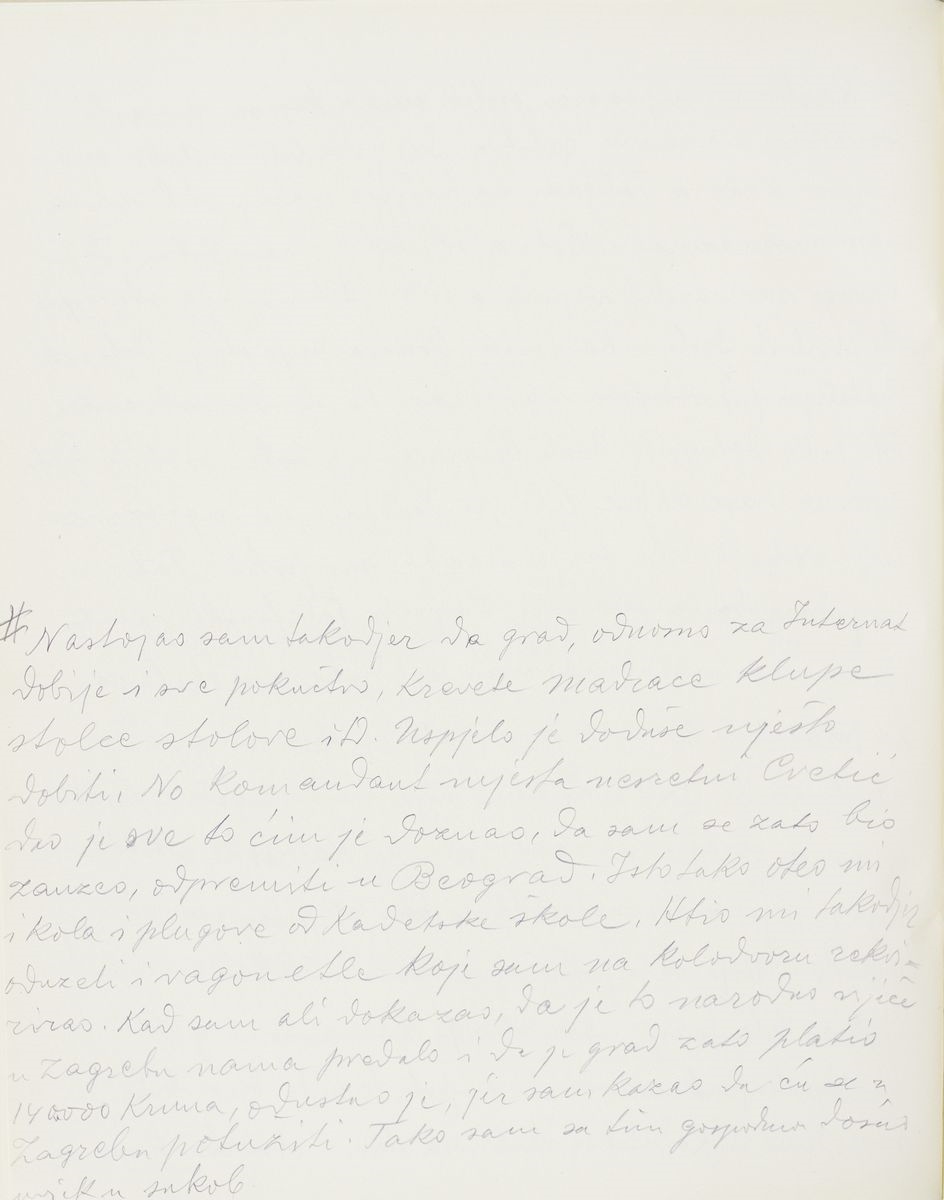 # Nastojao sam takodjer da grad, odnosno za Internat
dobije i sve pokućtvo, krevete madrace klupe
stolce stolove itd. Uspjelo je doduše nješto
dobiti. No komandant mjesta nesretni Cvetić
dao je sve to čim je doznao, da sam se zato bio
zauzeo, odpremiti u Beograd. Isto tako oteo mi
i kola i plugove od Kadetske škole. Htio mi takodjer
oduzeti i vagonetle koje sam na kolodvoru rekvi=
rirao. Kad sam ali dokazao, da je to narodno vijeće
u Zagrebu nama predalo i da je grad zato platio
14000 Kruna, odustao je, jer sam kazao da ću se u
Zagrebu potužiti. Tako sam sa tim gospodinom došao
uvjek u sukob.